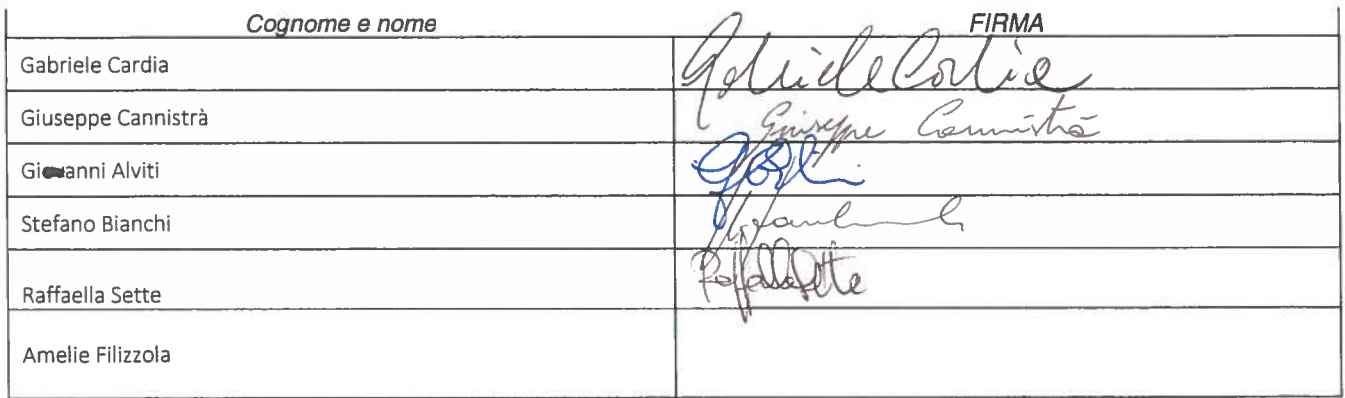 Cognome e nome FIRMA
Gabriele Cardia Gabriele Cardia
Giuseppe Cannistrà Giuseppe Cannistrà
Alviti
Stefano Bianchi
Raffaella Sette Raffaella Sette
Amelie Filizzola